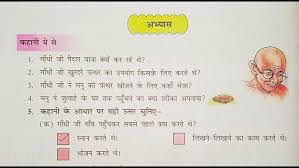 अभ्यास
कहानी में से
1. गाँधी जी पैदल यात्रा क्यों कर रहे थे?
2. गाँधी जी खुरदरे पत्थर का उपयोग किसके लिए करते थे?
3. गाँधी जी ने मनु को पत्थर खोजने के लिए कहाँ भेजा?
4. मनु ने जुलाहे के घर तक पहुँचने का क्या तरीका अपनाया?
5. कहानी के आधार पर सही उत्तर चुनिए–
(क) गाँधी जी गाँव पहुँचकर सबसे पहले क्या करते थे?
स्नान करते थे।
लिखने-लिखाने का काम करते थे।
भोजन करते थे।